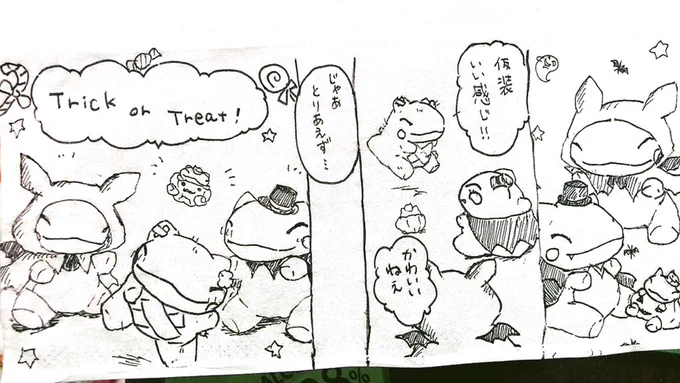 仮装
いい感じ!!
かわいい
ねぇ
じゃあ
とりあえず…
Trick or Treat!